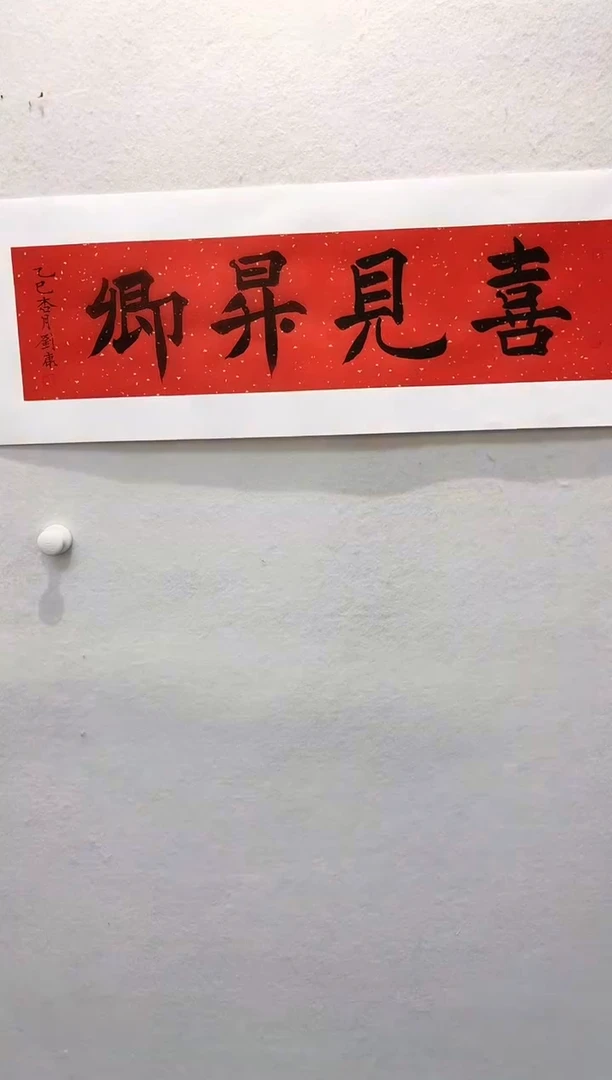 喜見昇卿
乙巳杏月劉